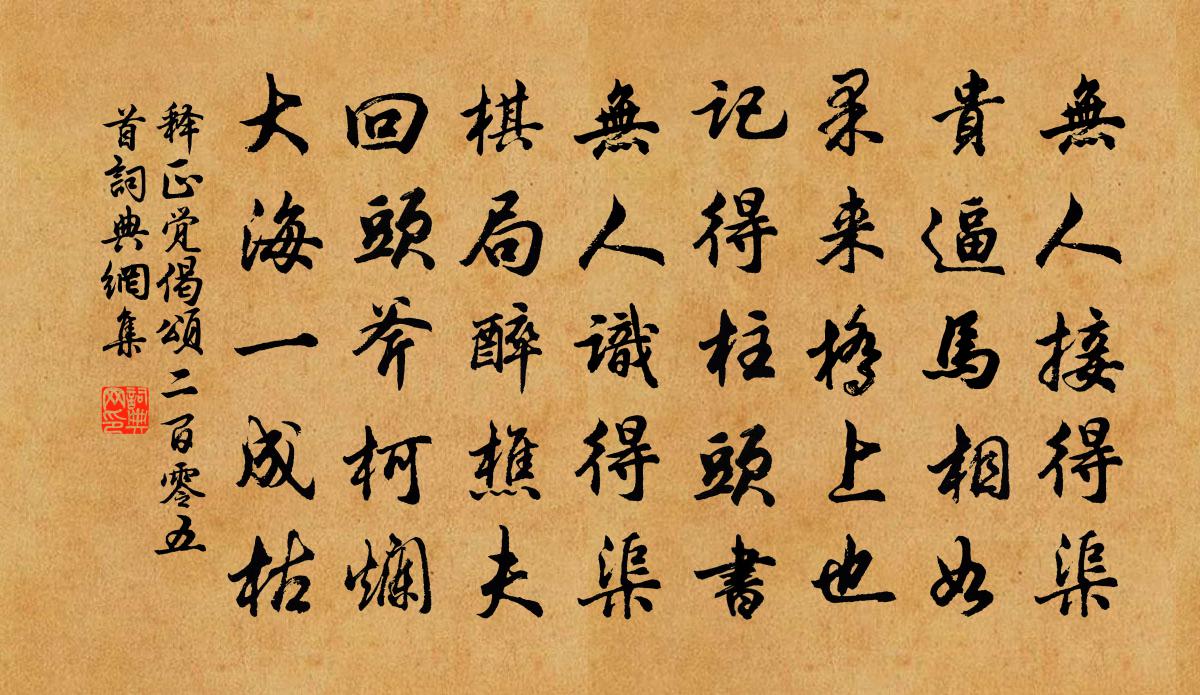 無人接得渠
貴逼馬相如
杲來橋上也
記得柱頭書
無人識得渠
棋局醉樵夫
回頭斧柯爛
大海一成枯
释正觉偈頌二百零五
首詞典網集
詞典
网印